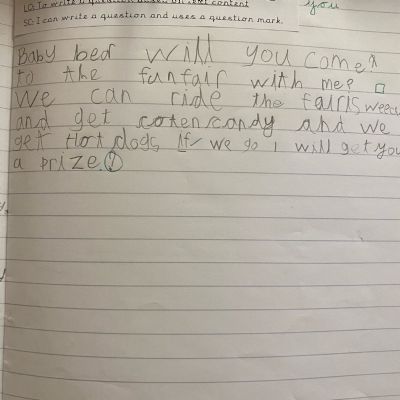 LO: To write a question based on text content
SC: I can write a question and uses a question mark.
you
Baby bear will you come
to the funfair with me?
We can ride the fairis weel
and get coten candy and we
get Hot dogs If we go I will get you
a prize?